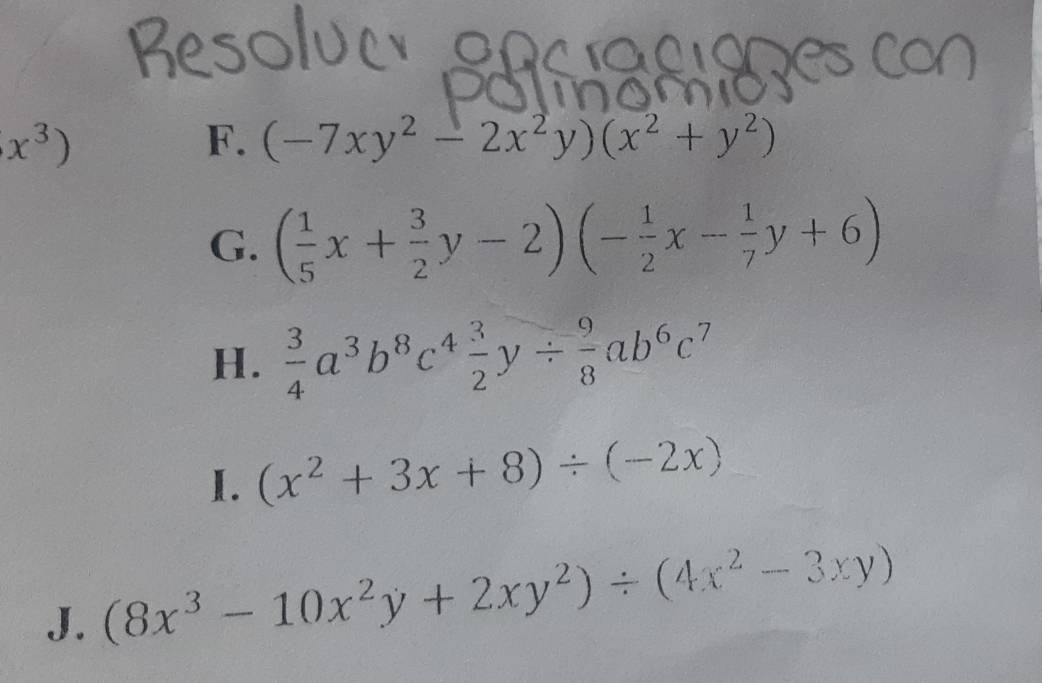 Resolver operaciones con
polinomios
x³) F. (−7xy² − 2x²y)(x² + y²)
G. (1/5 x + 3/2 y − 2)(−1/2 x − 1/7 y + 6)
H. 3/4 a³b⁸c⁴ 3/2 y ÷ 9/8 ab⁶c⁷
I. (x² + 3x + 8) ÷ (−2x)
J. (8x³ − 10x²y + 2xy²) ÷ (4x² − 3xy)